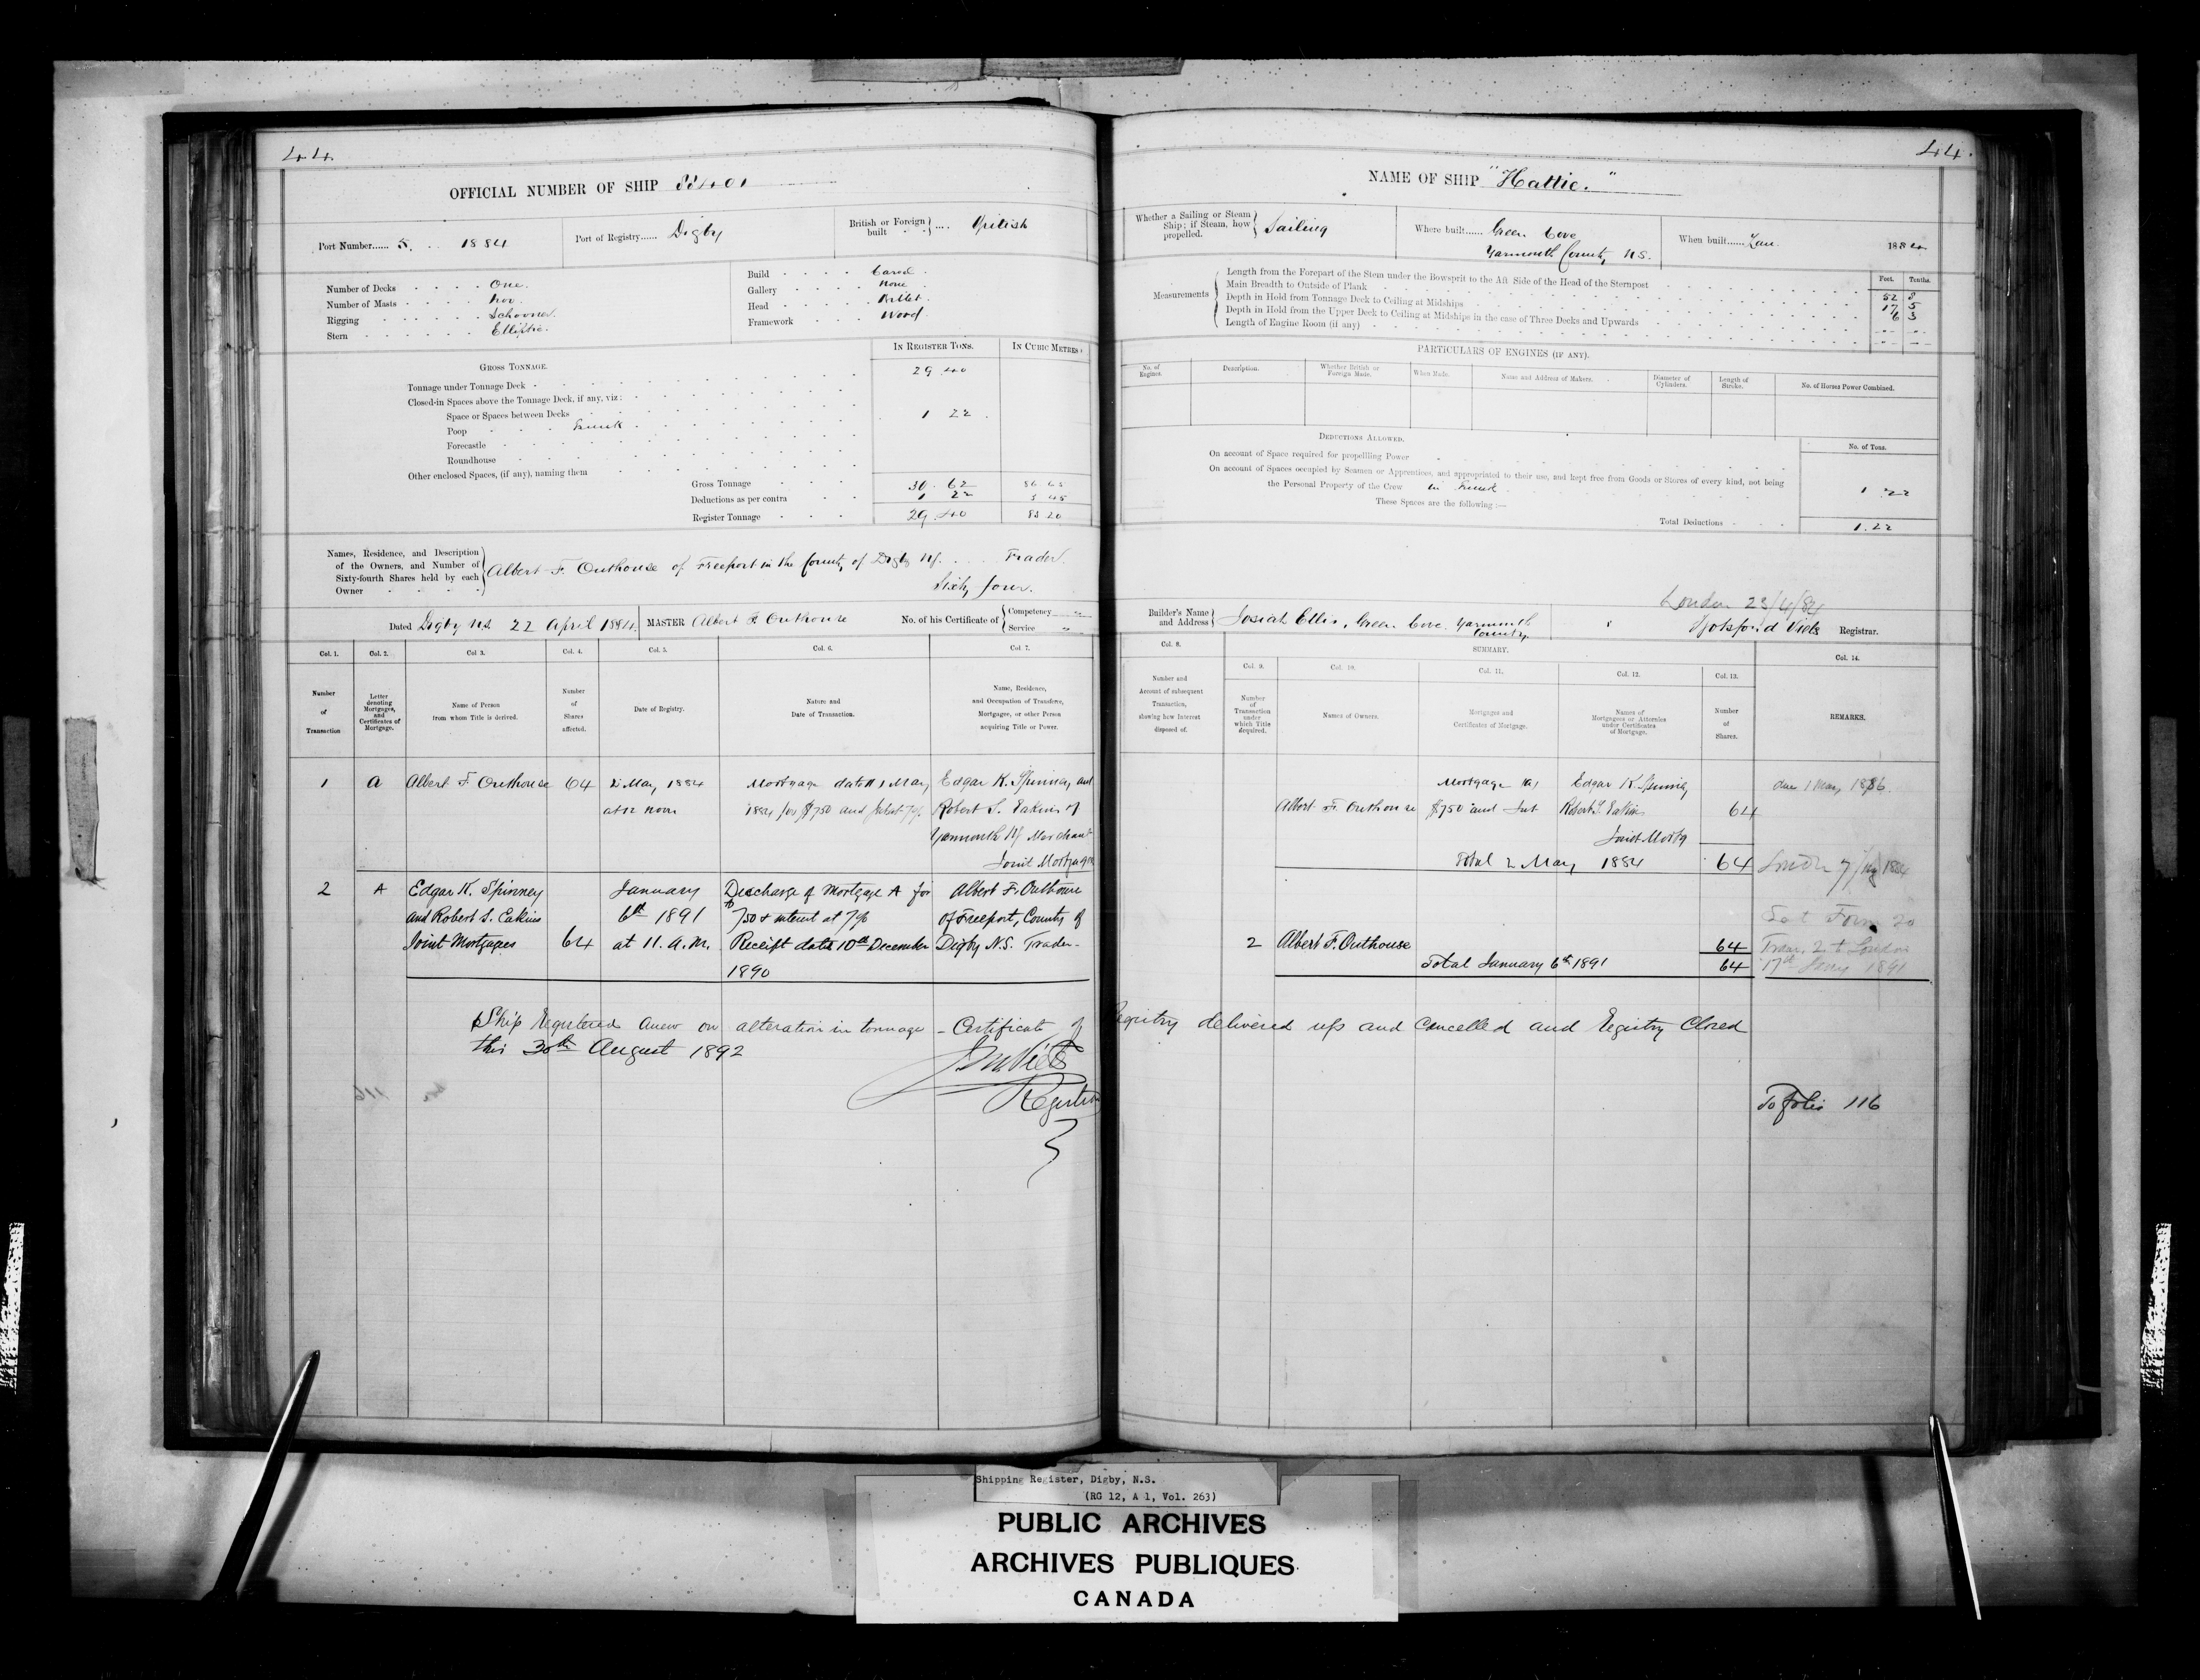 44.
OFFICIAL NUMBER OF SHIP 88401
Port Number...... 5. 1884
Port of Registry...... Digby
British or Foreign built } .... British
Number of Decks One.
Number of Masts Two.
Rigging Schooner.
Stern Elliptic.
Build Carvel.
Gallery None
Head Billet.
Framework Wood.
GROSS TONNAGE.
IN REGISTER TONS.
IN CUBIC METRES.
Tonnage under Tonnage Deck 29.40
Closed-in Spaces above the Tonnage Deck, if any, viz:
Space or Spaces between Decks 1 22
Poop Trunk
Forecastle
Roundhouse
Other enclosed Spaces, (if any), naming them
Gross Tonnage 30.62 86 65
Deductions as per contra 1 22 3 45
Register Tonnage 29.40 83 20
Names, Residence, and Description of the Owners, and Number of Sixty-fourth Shares held by each Owner
Albert F. Outhouse of Freeport in the County of Digby NS. Trader
Sixty four.
Dated Digby N.S. 22 April 1884.
MASTER Albert F. Outhouse
No. of his Certificate of { Competency
Service
Col. 1. Col. 2. Col 3. Col. 4. Col. 5. Col. 6. Col. 7.
Number of Transaction
Letter denoting Mortgages, and Certificates of Mortgage.
Name of Person from whom Title is derived.
Number of Shares affected.
Date of Registry.
Nature and Date of Transaction.
Name, Residence, and Occupation of Transferee, Mortgagee, or other Person acquiring Title or Power.
1 A Albert F Outhouse 64 2 May 1884 Mortgage dated 1 May Edgar K. Spinney and
at 12 noon 1884 for $750 and Intst 7% Robert S. Eakins of
Yarmouth NS Merchant
Joint Mortgagees
2 A Edgar K. Spinney January Discharge of Mortgage A for Albert F. Outhouse
and Robert S. Eakins 6th 1891 $750 & interest at 7% of Freeport, County of
Joint Mortgagees 64 at 11. a.m. Receipt date 10th December Digby N.S. Trader-
1890
Ship Registered anew on alteration in tonnage - Certificate of Registry delivered up and cancelled and Registry Closed
this 30th August 1892
Registrar
116
44.
NAME OF SHIP "Hattie."
Whether a Sailing or Steam Ship; if Steam, how propelled. } Sailing
Where built...... Green Cove
Yarmouth County N.S.
When built...... Jan. 1884
Measurements
Feet. Tenths.
Length from the Forepart of the Stem under the Bowsprit to the Aft Side of the Head of the Sternpost 52 8
Main Breadth to Outside of Plank 17 5
Depth in Hold from Tonnage Deck to Ceiling at Midships 6 3
Depth in Hold from the Upper Deck to Ceiling at Midships in the case of Three Decks and Upwards
Length of Engine Room (if any)
PARTICULARS OF ENGINES (IF ANY).
No. of Engines.
Description.
Whether British or Foreign Made.
When Made.
Name and Address of Makers.
Diameter of Cylinders.
Length of Stroke.
No. of Horses Power Combined.
DEDUCTIONS ALLOWED.
No. of Tons.
On account of Space required for propelling Power
On account of Spaces occupied by Seamen or Apprentices, and appropriated to their use, and kept free from Goods or Stores of every kind, not being
the Personal Property of the Crew in Trunk 1.22
These Spaces are the following :—
Total Deductions 1.22
London 23/4/84
Builder's Name and Address } Josiah Ellis, Green Cove Yarmouth County
Botsford Viets Registrar.
Col. 8.
SUMMARY.
Col. 9. Col. 10. Col. 11. Col. 12. Col. 13. Col. 14.
Number and Account of subsequent Transaction, showing how Interest disposed of.
Number of Transaction under which Title Acquired.
Names of Owners.
Mortgages and Certificates of Mortgage.
Names of Mortgagees or Attornies under Certificates of Mortgage.
Number of Shares.
REMARKS.
Mortgage (A) Edgar K. Spinney due 1 May 1886.
Albert F. Outhouse $750 and Int Robert S. Eakins 64
Joint Mortg
Total 2 May 1884 64
2 Albert F. Outhouse 64 Tran. 2 to London
Total January 6th 1891 64 17th Jany 1891
To folio 116
Shipping Register, Digby, N.S.
(RG 12, A 1, Vol. 263)
PUBLIC ARCHIVES
ARCHIVES PUBLIQUES
CANADA